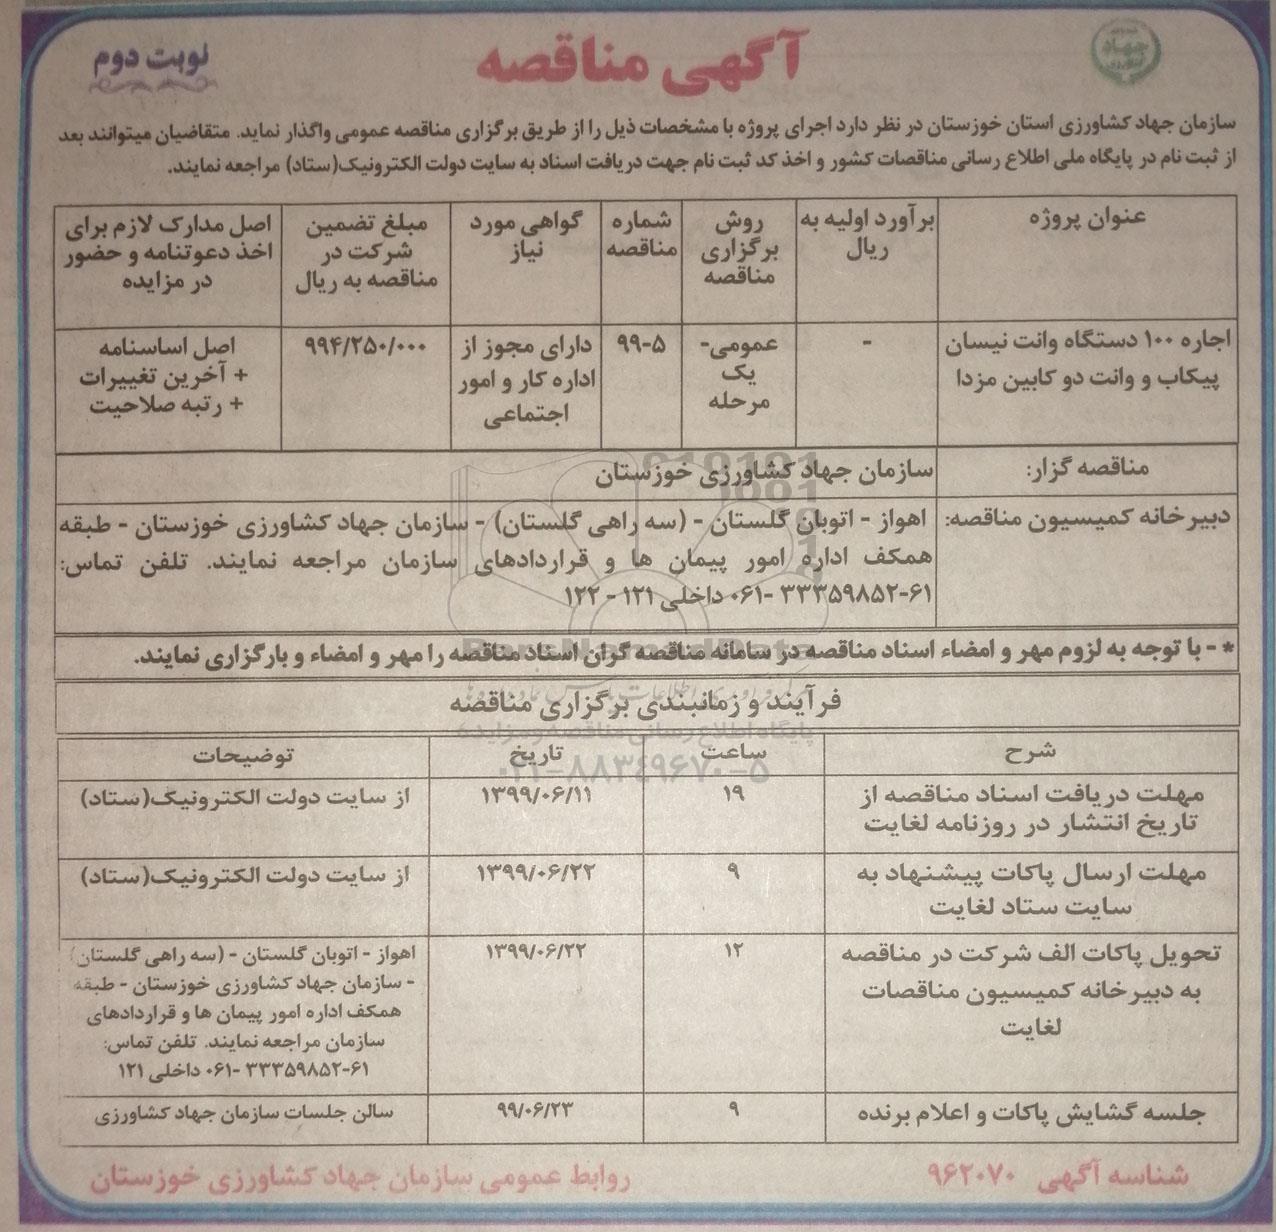 جهاد
کشاورزی
آگهی مناقصه
نوبت دوم
سازمان جهاد کشاورزی استان خوزستان در نظر دارد اجرای پروژه با مشخصات ذیل را از طریق برگزاری مناقصه عمومی واگذار نماید. متقاضیان میتوانند بعد
از ثبت نام در پایگاه ملی اطلاع رسانی مناقصات کشور و اخذ کد ثبت نام جهت دریافت اسناد به سایت دولت الکترونیک(ستاد) مراجعه نمایند.
عنوان پروژه
برآورد اولیه به
ریال
روش
برگزاری
مناقصه
شماره
مناقصه
گواهی مورد
نیاز
مبلغ تضمین
شرکت در
مناقصه به ریال
اصل مدارک لازم برای
اخذ دعوتنامه و حضور
در مزایده
اجاره ۱۰۰ دستگاه وانت نیسان
پیکاب و وانت دو کابین مزدا
-
عمومی-
یک
مرحله
۹۹-۵
دارای مجوز از
اداره کار و امور
اجتماعی
۹۹۴/۲۵۰/۰۰۰
اصل اساسنامه
+ آخرین تغییرات
+ رتبه صلاحیت
مناقصه گزار:
سازمان جهاد کشاورزی خوزستان
دبیرخانه کمیسیون مناقصه:
اهواز - اتوبان گلستان - (سه راهی گلستان) - سازمان جهاد کشاورزی خوزستان - طبقه
همکف اداره امور پیمان ها و قراردادهای سازمان مراجعه نمایند. تلفن تماس:
۶۱-۳۳۳۵۹۸۵۲ -۰۶۱ داخلی ۱۲۱ - ۱۲۲
* - با توجه به لزوم مهر و امضاء اسناد مناقصه در سامانه مناقصه گران اسناد مناقصه را مهر و امضاء و بارگزاری نمایند.
فرآیند و زمانبندی برگزاری مناقصه
پایگاه اطلاع رسانی مناقصه و مزایده
۰۲۱-۸۸۳۴۹۶۷۰-۵
شرح
ساعت
تاریخ
توضیحات
مهلت دریافت اسناد مناقصه از
تاریخ انتشار در روزنامه لغایت
۱۹
۱۳۹۹/۰۶/۱۱
از سایت دولت الکترونیک(ستاد)
مهلت ارسال پاکات پیشنهاد به
سایت ستاد لغایت
۹
۱۳۹۹/۰۶/۲۲
از سایت دولت الکترونیک(ستاد)
تحویل پاکات الف شرکت در مناقصه
به دبیرخانه کمیسیون مناقصات
لغایت
۱۲
۱۳۹۹/۰۶/۲۲
اهواز - اتوبان گلستان - (سه راهی گلستان)
- سازمان جهاد کشاورزی خوزستان - طبقه
همکف اداره امور پیمان ها و قراردادهای
سازمان مراجعه نمایند. تلفن تماس:
۶۱-۳۳۳۵۹۸۵۲ -۰۶۱ داخلی ۱۲۱
جلسه گشایش پاکات و اعلام برنده
۹
۹۹/۰۶/۲۳
سالن جلسات سازمان جهاد کشاورزی
شناسه آگهی ۹۶۲۰۷۰
روابط عمومی سازمان جهاد کشاورزی خوزستان